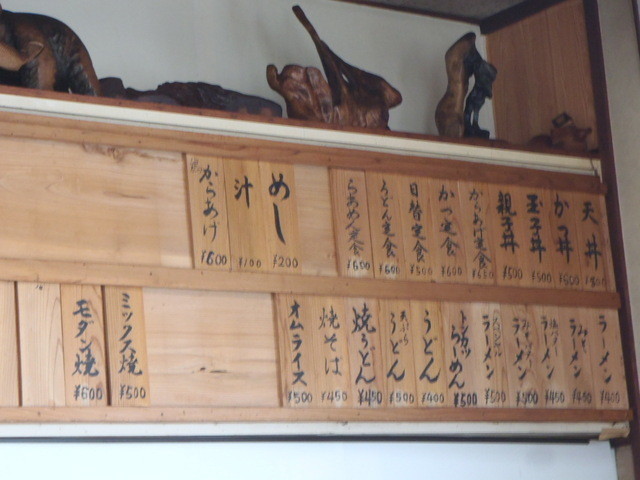 天丼 ¥500
かつ丼 ¥600
玉子丼 ¥500
親子丼 ¥500
からあげ定食 ¥650
かつ定食 ¥600
日替定食 ¥500
うどん定食 ¥600
らあめん定食 ¥600
めし ¥200
汁 ¥100
からあげ ¥600
ラーメン ¥400
みそ ラーメン ¥400
ラーメン ¥450
ラーメン ¥500
ラーメン ¥500
らーめん ¥500
うどん ¥400
天ぷら うどん ¥500
焼うどん ¥450
焼そば ¥450
オムライス ¥500
ミックス焼 ¥500
モダン焼 ¥600